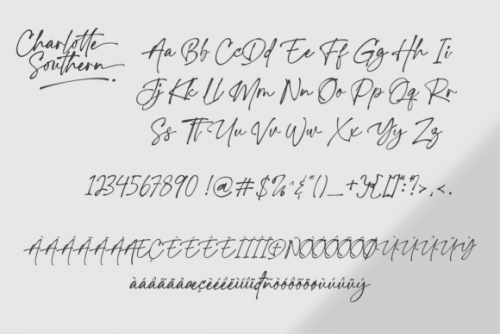 Charlotte
Southern
Aa Bb Cc Dd Ee Ff Gg Hh Ii
Jj Kk Ll Mm Nn Oo Pp Qq Rr
Ss Tt Uu Vv Ww Xx Yy Zz
1234567890 !@#$%^&*()_+{}[]:?>,<.
ÀÁÂÃÄÅÆÇÈÉÊËÌÍÎÏÐÑÒÓÔÕÖØÙÚÛÜÝ
àáâãäåæçèéêëìíîïðñòóôõöøùúûüý